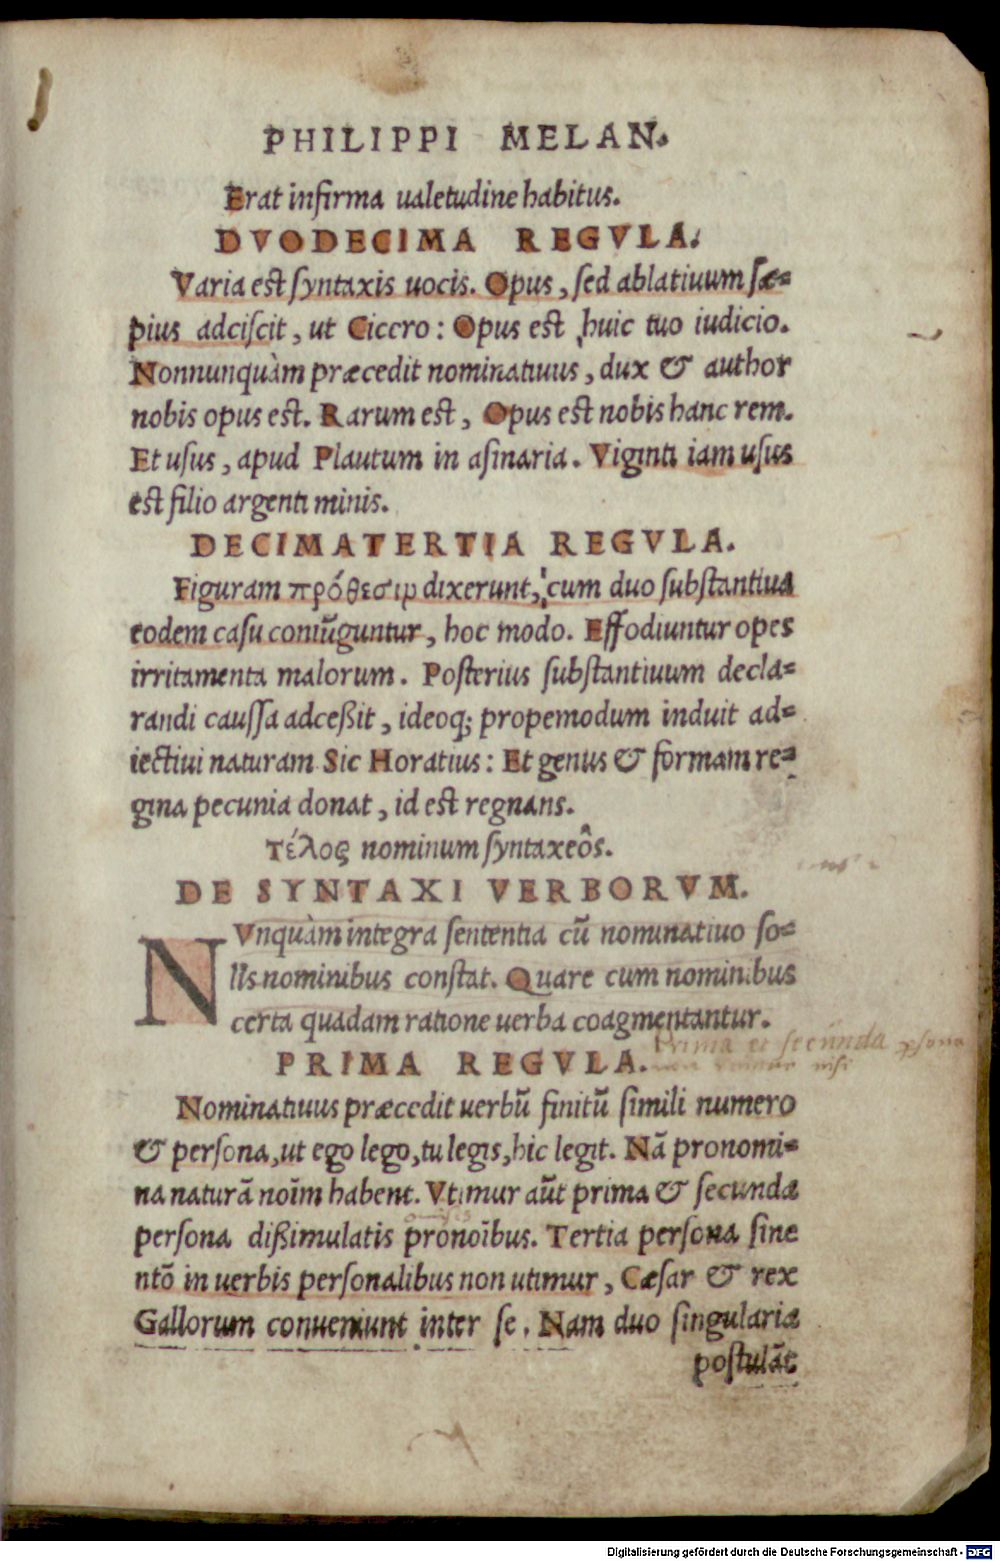 PHILIPPI MELAN.
Erat infirma ualetudine habitus.
DVODECIMA REGVLA.
Varia est syntaxis uocis. Opus, sed ablatiuum sæ-
pius adciscit, ut Ciccro: Opus est huic tuo iudicio.
Nonnunquàm præcedit nominatiuus, dux & author
nobis opus est. Rarum est, Opus est nobis hanc rem.
Et usus, apud Plautum in asinaria. Viginti iam usus
est filio argenti minis.
DECIMATERTIA REGVLA.
Figuram πρόθεσιν dixerunt, cum duo substantiua
eodem casu coniũguntur, hoc modo. Effodiuntur opes
irritamenta malorum. Posterius substantiuum decla-
randi caussa adceßit, ideoq; propemodum induit ad-
iectiui naturam Sic Horatius: Et genus & formam re-
gina pecunia donat, id est regnans.
τέλος nominum syntaxeôs.
DE SYNTAXI VERBORVM.
NVnquàm integra sententia cũ nominatiuo so-
lis nominibus constat. Quare cum nominibus
certa quadam ratione uerba coagmentantur.
Prima et secunda persona
nisi
PRIMA REGVLA.
Nominatiuus præcedit uerbũ finitũ simili numero
& persona, ut ego lego, tu legis, hic legit. Nã pronomi-
na naturã noĩm habent. Vtimur aũt prima & secunda
persona dißimulatis pronoĩbus. Tertia persona sine
ntõ in uerbis personalibus non utimur, Cæsar & rex
Gallorum conueniunt inter se. Nam duo singularia
postulãt
Digitalisierung gefördert durch die Deutsche Forschungsgemeinschaft - DFG